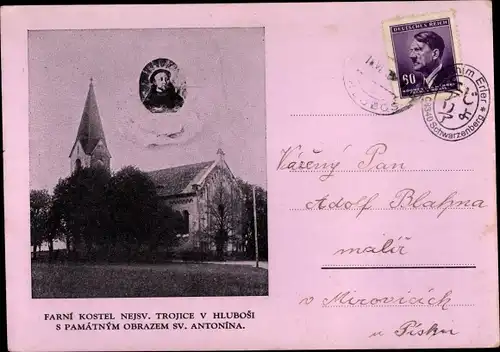 DEUTSCHES REICH
60
HLUBOŠ
him Erler
08340 Schwarzenberg
Vážený Pan
Adolf Blahna
malíř
v Mirovicích
u Písku
FARNÍ KOSTEL NEJSV. TROJICE V HLUBOŠI
S PAMÁTNÝM OBRAZEM SV. ANTONÍNA.